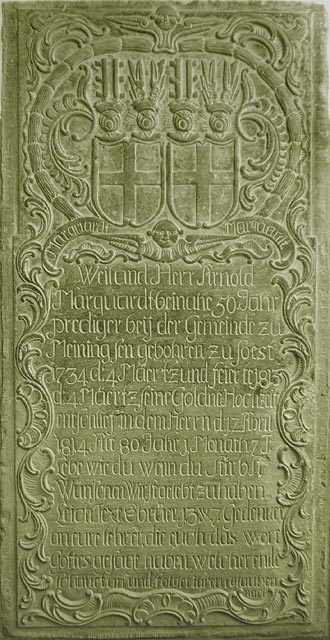 Marquardt Marquardt
Weiland Herr Arnold
Marquardt beinahe 50 Jahr
prediger beij der Gemeinde zu
Meiningsen gebohren zu soest
1734 d: 4 Maertz und feierte 1813
d: 4 Maertz seine Goldne Hochzeit
entschlief in dem Herrn d: 12 April
1814 Alt 80 Jahr 1 Monath 7 T
lebe wie du wenn du stirbst
Wünschen Wirst gelebt zu haben
Leich text Ebräer 13 v 7 Gedencket
an eure lehrer die euch das wort
Gottes gesagt haben welcher ende
schauet an und folget ihrem glauben
nach